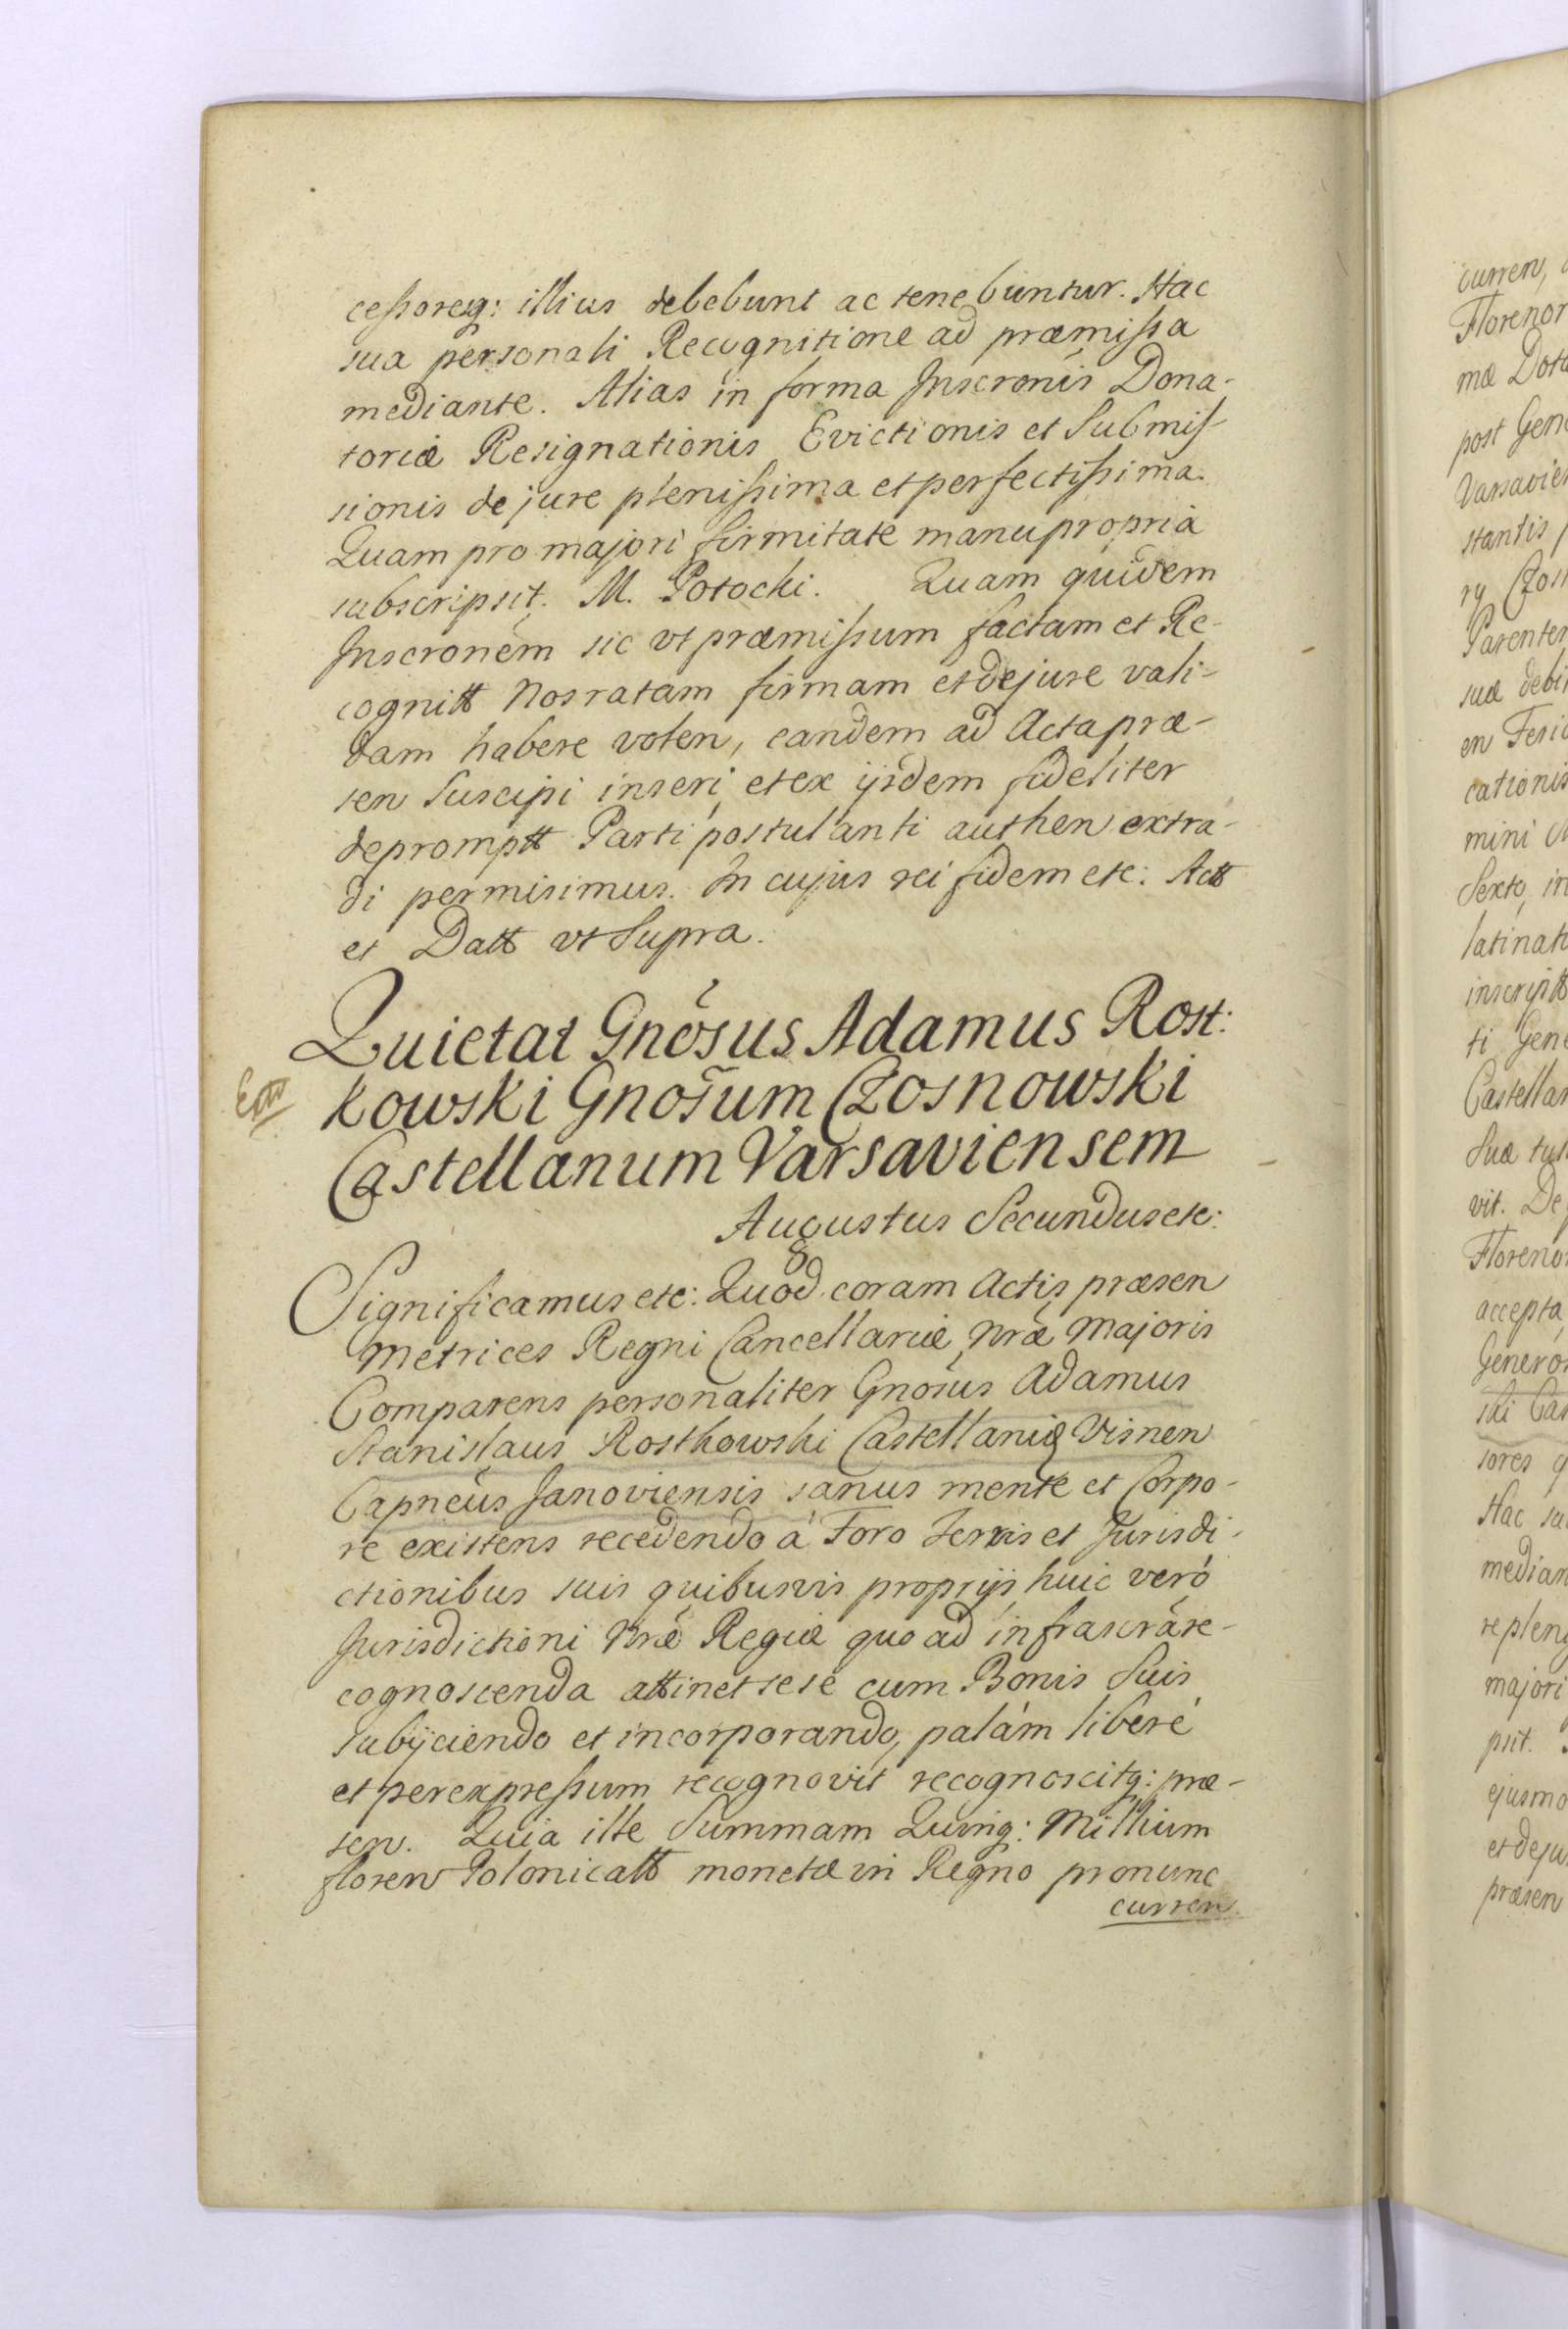 cessoresq: illius debebunt ac tenebuntur. Hac
sua personali Recognitione ad præmissa
mediante. Alias in forma Inscronis Dona-
toriæ Resignationis Evictionis et Submis-
sionis de jure plenissima et perfectissima.
Quam pro majori firmitate manu propria
subscripsit. M. Potocki. Quam quidem
Inscronem sic vt præmissum factam et Re-
cognitt Nos ratam firmam et de jure vali-
dam habere volen, eandem ad Acta præ-
sen Suscipi inseri et ex ijsdem fideliter
depromptt Parti postulanti authen extra-
di permisimus. In cujus rei fidem etc: Actt
et Datt vt Supra.
Quietat Gnõsus Adamus Rost:
kowski Gnosum Czosnowski
Castellanum Varsaviensem
Augustus Secundus etc:
Significamus etc: Quod coram Actis præsen
Metrices Regni Cancellariæ Nræ Majoris
Comparens personaliter Gnosus Adamus
Stanislaus Rostkowski Castellanię Visnen
Capneus Janoviensis sanus mente et Corpo-
re existens recedendo à Foro Terris et Jurisdi-
ctionibus suis quibusvis proprijs huic verò
Jurisdictioni Nræ Regiæ quo ad infrascra re-
cognoscenda attinet sese cum Bonis Suis
Subijciendo et incorporando, palàm liberè
et per expressum recognovit recognoscitq: præ-
sen. Quia ille Summam Quinq: Millium
floren Polonicatt monetæ in Regno pro nunc
curren.
curren,
Florenor
mæ Dota
post Gen
Varsavien
stantis
Parenter
suæ debi
cationis
mini
Sexto, in
latinat
inscriptt
ti Gene
Castellan
Suæ
vit. De
Floreno
accepta
Generos
ski Cas
sores
Hac su
median
re plen
majori
psit.
ejusmo
et de ju
præsen